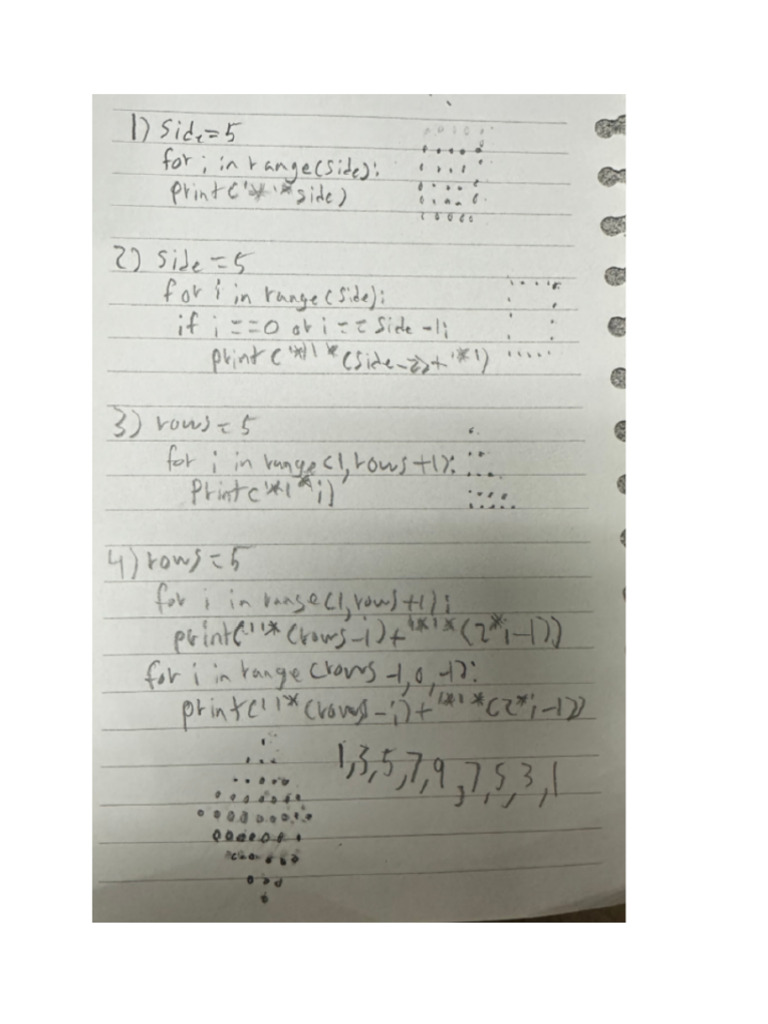 1) side=5
for i in range(side):
print('*'*side)
2) side=5
for i in range(side):
if i==0 or i==side-1:
print('*'*(side-2)+'*')
3) rows=5
for i in range(1,rows+1):
print('*'*i)
4) rows=5
for i in range(1,rows+1):
print(' '*(rows-i)+'*'*(2*i-1))
for i in range(rows-1,0,-1):
print(' '*(rows-i)+'*'*(2*i-1))
1,3,5,7,9,7,5,3,1